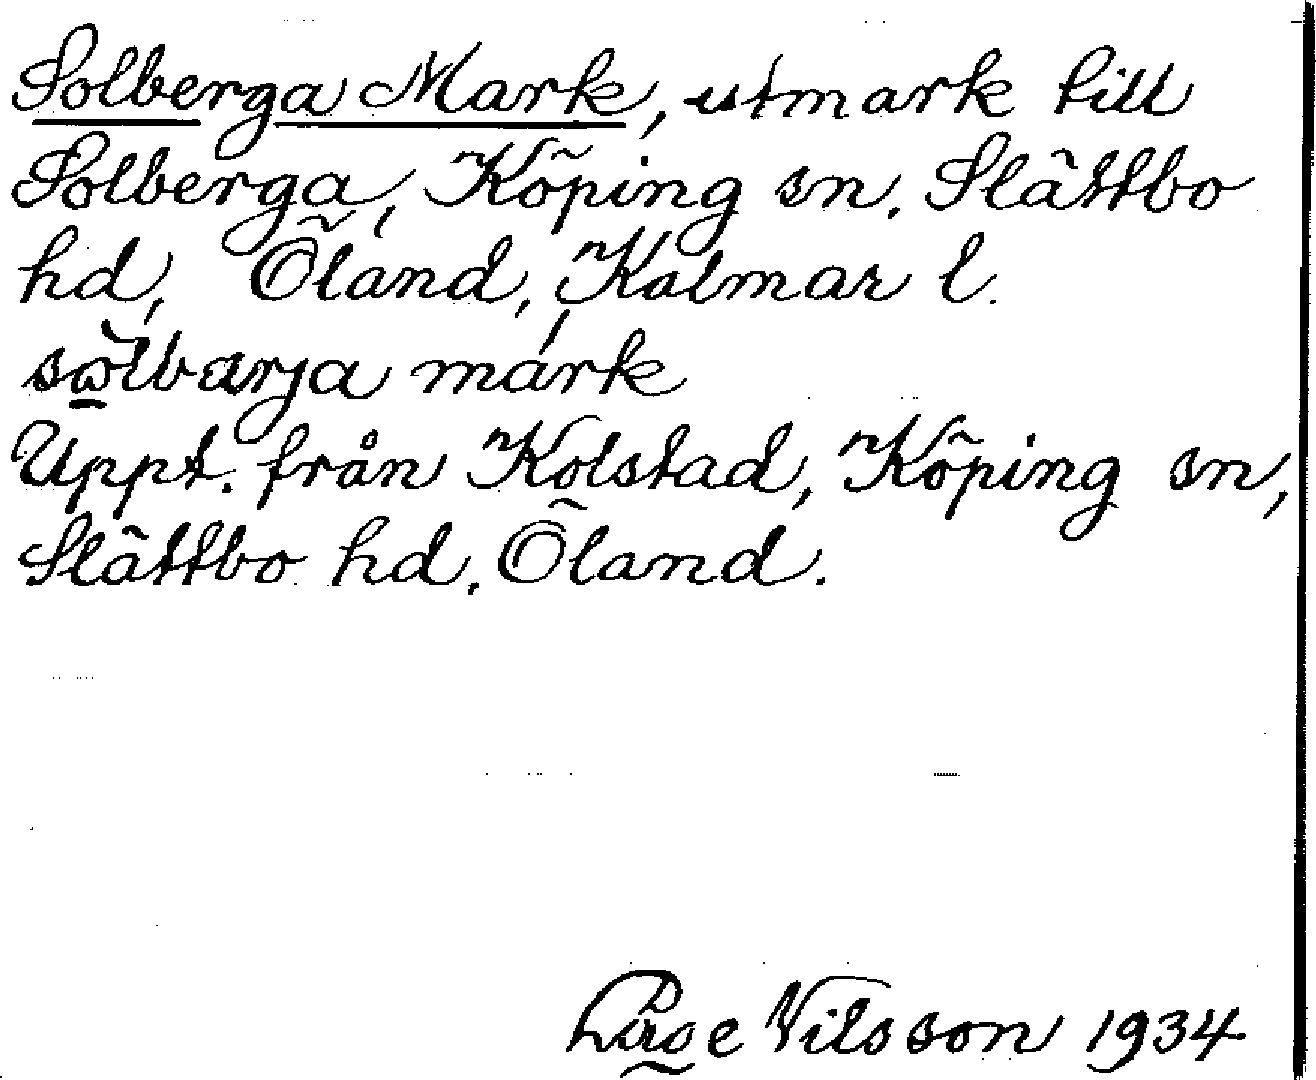 Solberga Mark, utmark till
Solberga, Köping sn. Slättbo
hd, Öland, Kalmar l.
sωlbærja márk
Uppt. från Kolstad, Köping sn,
Slättbo hd. Öland.
Nilsson 1934